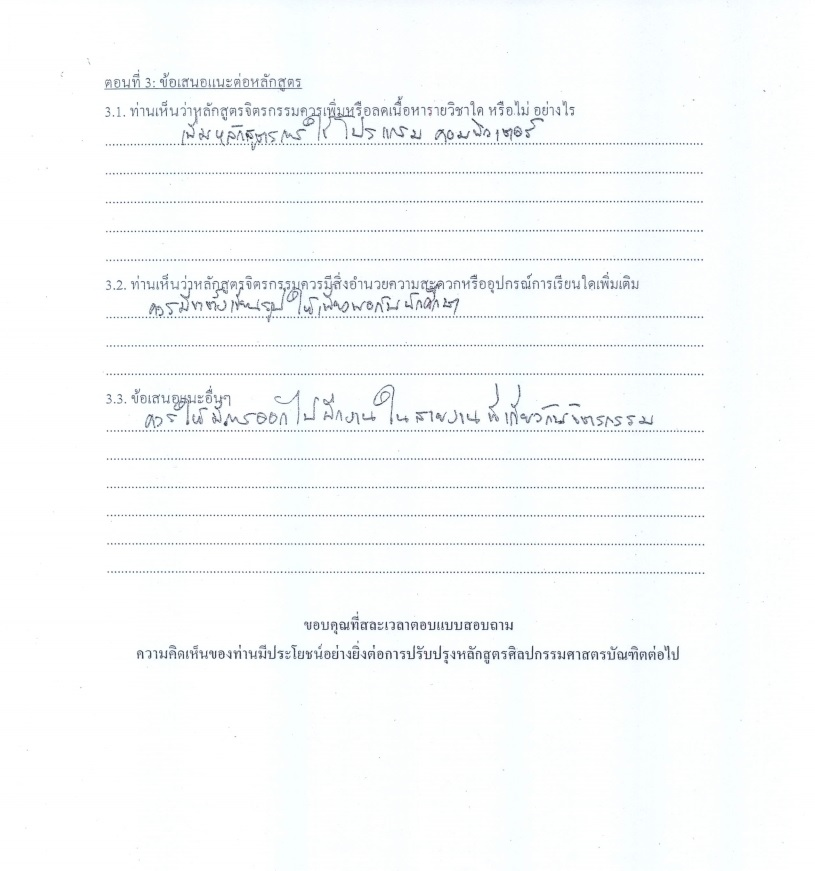 ตอนที่ 3: ข้อเสนอแนะต่อหลักสูตร
3.1. ท่านเห็นว่าหลักสูตรจิตรกรรมควรเพิ่มหรือลดเนื้อหารายวิชาใด หรือไม่ อย่างไร
เพิ่มหลักสูตรการใช้โปรแกรม คอมพิวเตอร์
3.2. ท่านเห็นว่าหลักสูตรจิตรกรรมควรมีสิ่งอำนวยความสะดวกหรืออุปกรณ์การเรียนใดเพิ่มเติม
ควรมีขาตั้งเขียนรูป ให้เพียงพอกับนักศึกษา
3.3. ข้อเสนอแนะอื่นๆ
ควรให้มีการออกไปฝึกงาน ในสายงาน ที่เกี่ยวกับจิตรกรรม
ขอบคุณที่สละเวลาตอบแบบสอบถาม
ความคิดเห็นของท่านมีประโยชน์อย่างยิ่งต่อการปรับปรุงหลักสูตรศิลปกรรมศาสตรบัณฑิตต่อไป